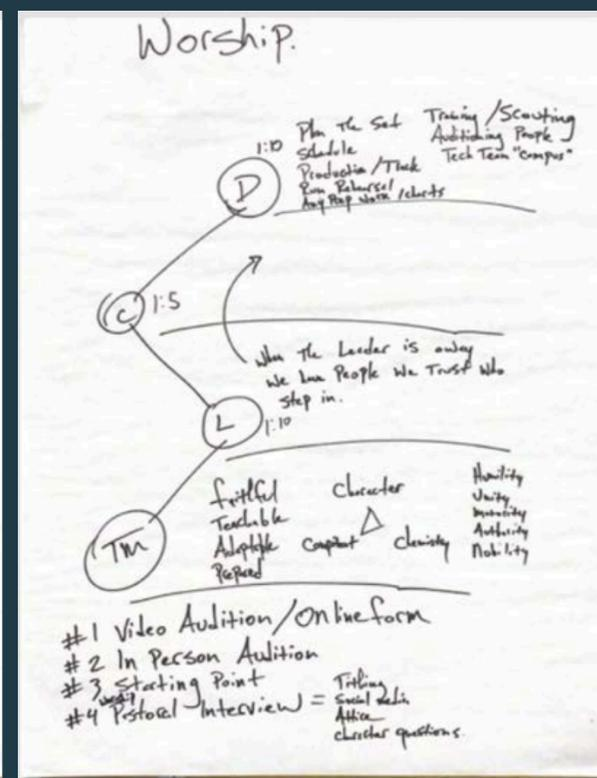 Worship.
1:10
D
Plan The Set
Schedule
Production / Track
Run Rehearsal
Any Prep work / charts
Training / Scouting
Auditioning People
Tech Team "campus"
C
1:5
When The Leader is away
We have People We Trust Who
step in.
L
1:10
TM
faithful
Teachable
Adaptable
Prepared
Character
Chemistry
Humility
Unity
Maturity
Authority
Nobility
#1 Video Audition / Online form
#2 In Person Audition
#3 Starting Point
worship
#4 Pastoral Interview =
Tithing
Social Media
Attire
character questions.